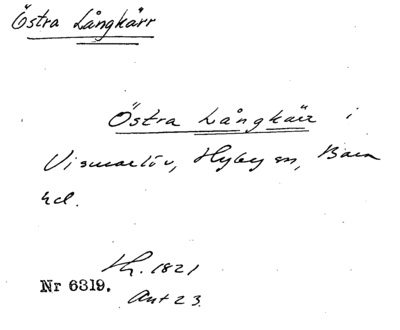 Östra Långkärr
Östra Långkärr i
Vismarlöv, Hyby sn, Bara
hd.
Lh. 1821
Nr 6319.
Akt 23.